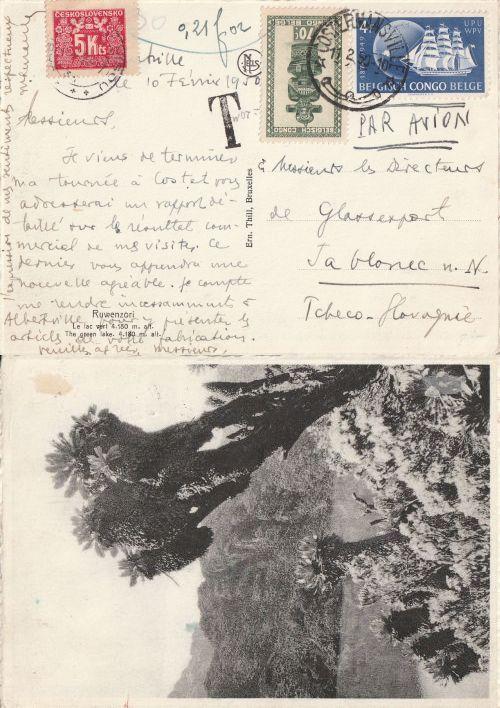 ČESKOSLOVENSKO
5 Kčs
0,21 fr or
T
le 10 Février 1950
Messieurs,
Je viens de terminer
ma tournée à Costat vous
adresserai un rapport dé-
taillé sur le résultat com-
mercial de ma visite. Ce
dernier vous apprendra une
nouvelle agréable. Je compte
me rendre incessamment à
Albertville pour y présenter les
articles de votre fabrication.
Veuillez agréer, Messieurs,
l'expression de mes sentiments respectueux
Ruwenzori
Le lac vert 4.180 m. alt.
The green lake. 4.180 m. alt.
Ern. Thill, Bruxelles
BELGISCH CONGO BELGE
COSTERMANSVILLE
1874 1949
4F
UPU
WPV
BELGISCH CONGO BELGE
PAR AVION
Messieurs les Directeurs
de Glassexport
Jablonec n. N.
Tchéco-Slovaquie